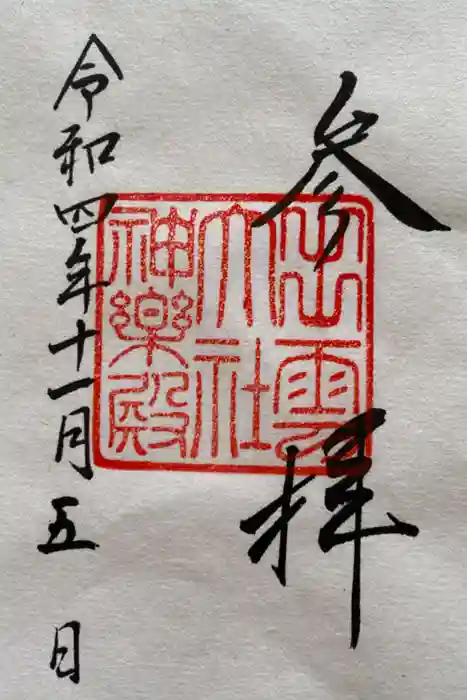 参拝
出雲
大社
神樂殿
令和四年十一月五日